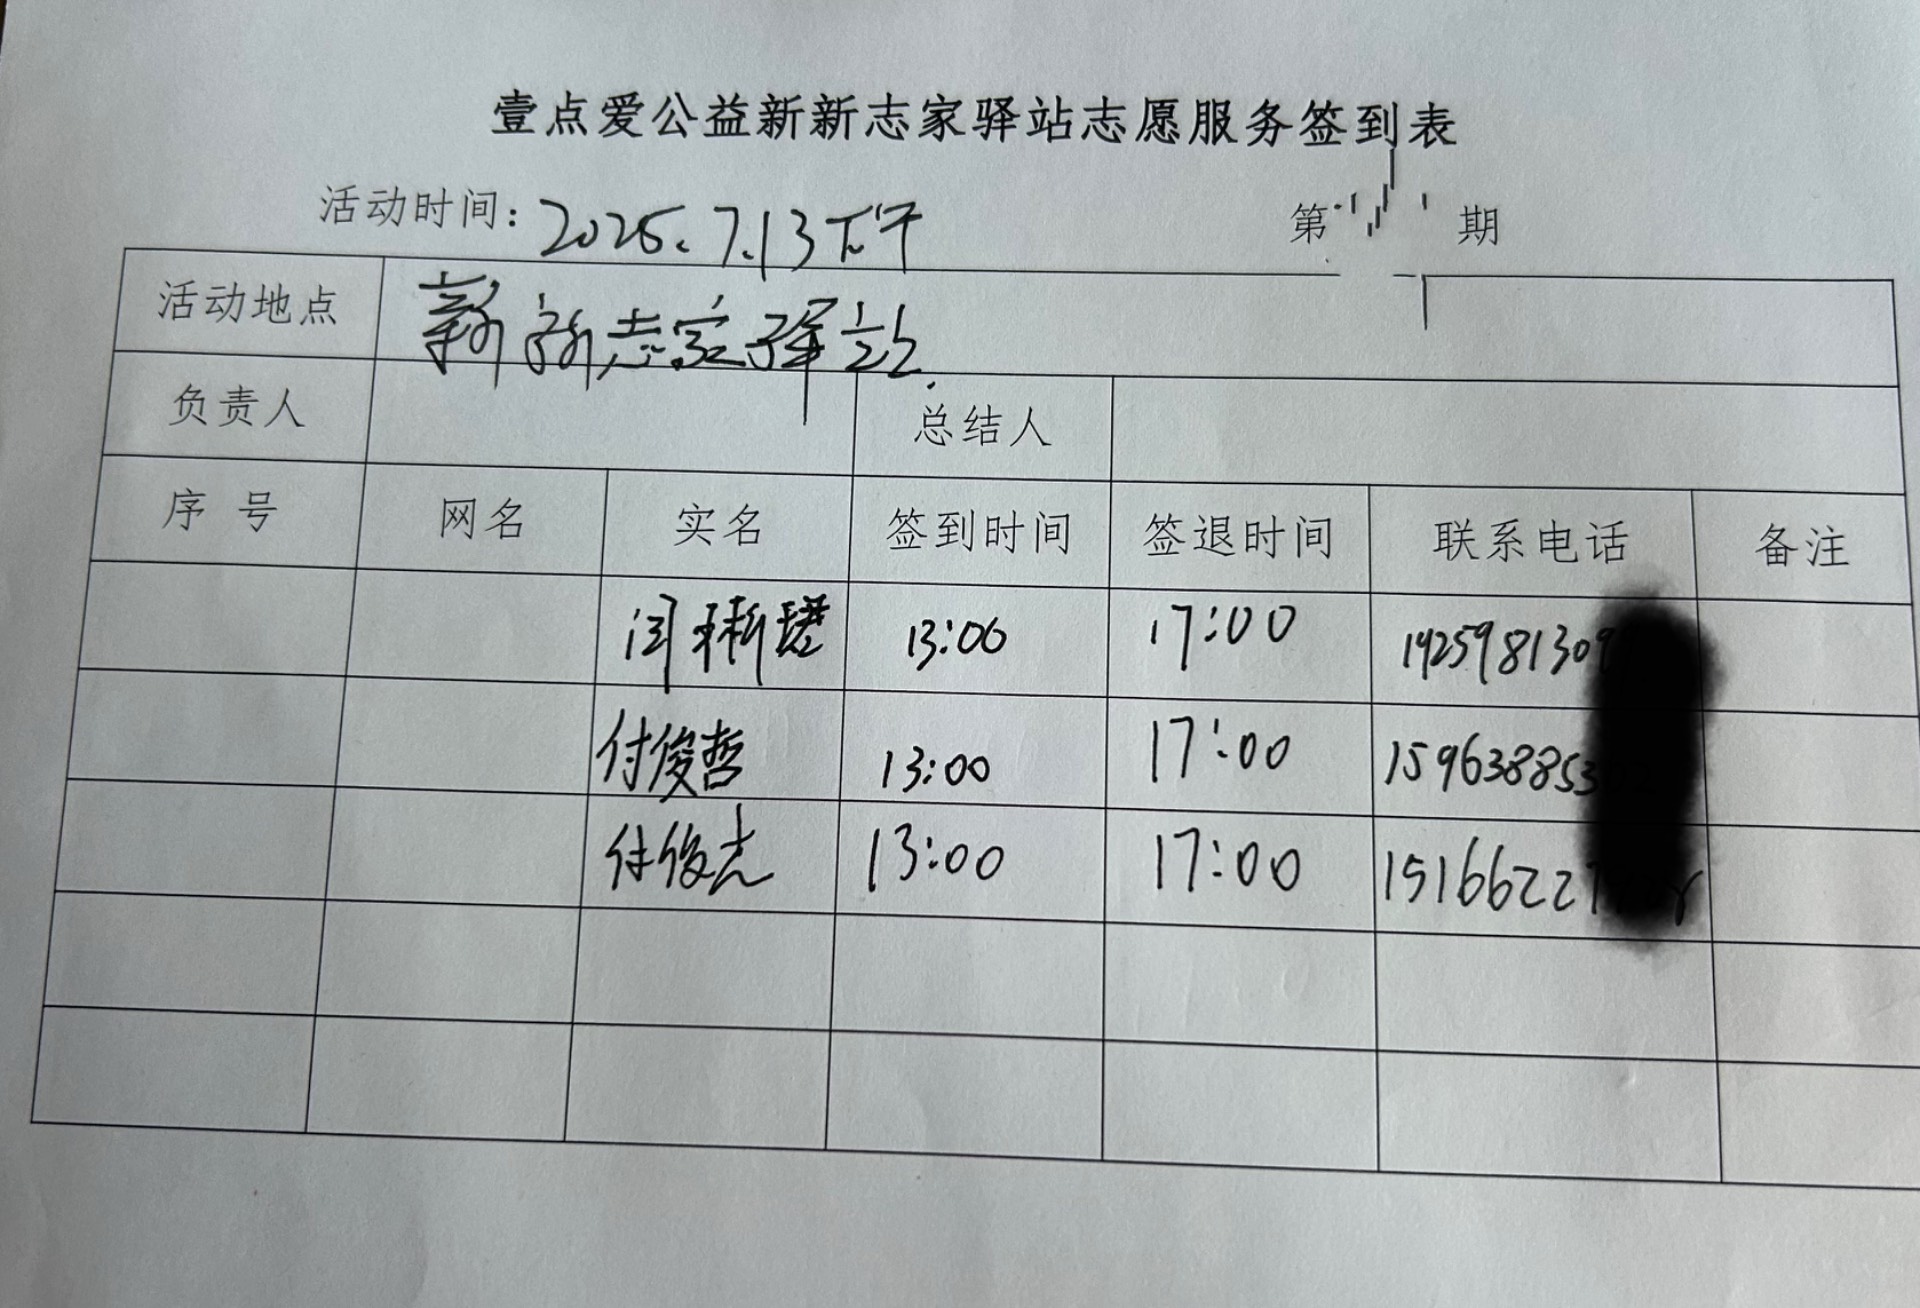 壹点爱公益新新志家驿站志愿服务签到表
活动时间：2025.7.13下午 第 期
活动地点 新新志家驿站.
负责人 总结人
序号 网名 实名 签到时间 签退时间 联系电话 备注
闫 13:00 17:00 1425981309
付俊哲 13:00 17:00 1596388853
付俊志 13:00 17:00 15166227